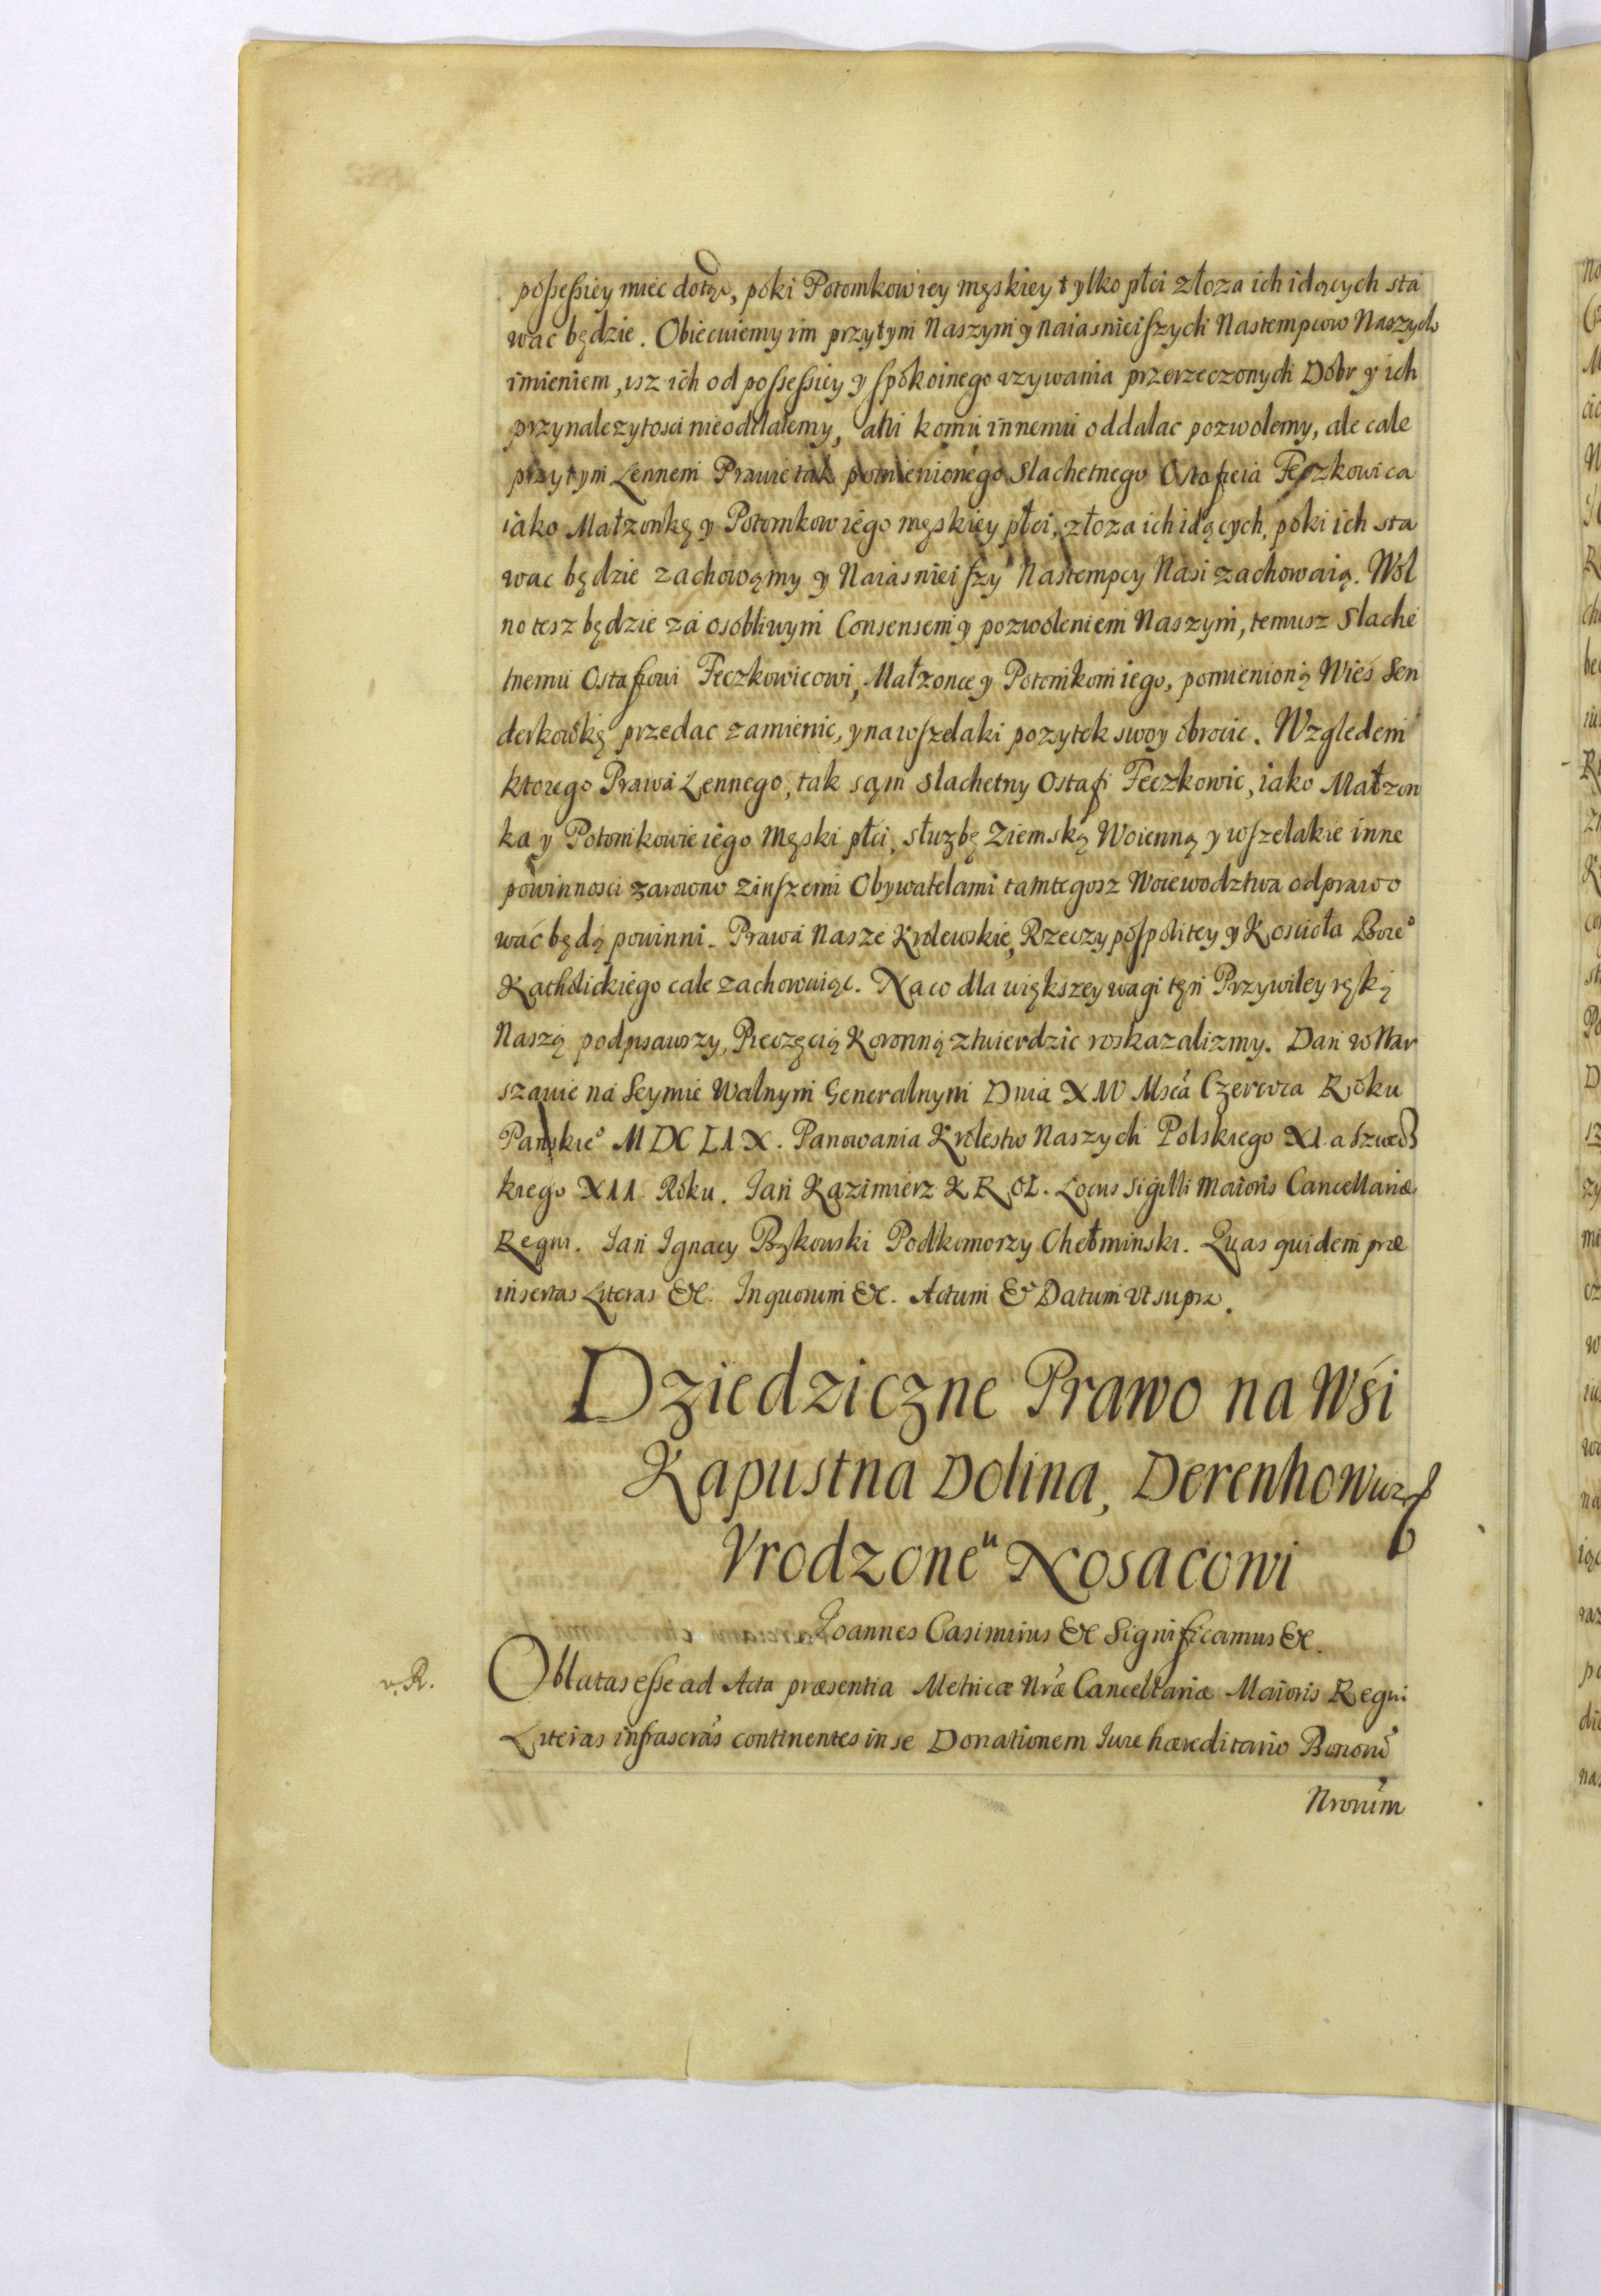 possessiey miec dotąd, poki Potomkow iey męskiey tylko płci złoza ich idących sta
wac będzie. Obiecuiemy im przytym Naszym y naiasnieiszych Nastempcow Naszych
imieniem, isz ich od possessiey y spokoinego uzywania przerzeczonych Dobr y ich
przynalezytosci nieoddalemy, ani komu innemu oddalac pozwolemy, ale cale
przytym Lennem Prawie tak pomienionego Slachetnego Ostafieia Feczkowica
iako Małzonkę y Potomkow iego męskiey płci, złoza ich idących, poki ich sta
wac będzie zachowamy y Naiasnieiszy Nastempcy Nasi zachowaią. Wol
no tesz będzie za osobliwym Consensem y pozwoleniem Naszym, temusz Slache
tnemu Ostafiowi Feczkowicowi, Małzonce y Potomkom iego, pomienioną Wieś Sen
derkowkę przedac zamienic, y na wszelaki pozytek swoy obrocic. Względem
ktorego Prawa Lennego, tak sąm Slachetny Ostafi Feczkowic, iako Małzon
ka y Potomkowie iego Męski płci, słuzbę Ziemską Woienną y wszelakie inne
powinnosci zarowno z inszemi Obywatelami tamtegosz Woiewodztwa odprawo
wać będą powinni. Prawa Nasze Krolewskie, Rzeczypospolitey y Koscioła Boze°
Katholickiego cale zachowuiąc. Na co dla większey wagi tęn Przywiley ręką
Naszą podpisawszy, Pieczęcią Koronną ztwierdzic roskazalizmy. Dan w War
szawie na Seymie Walnym Generalnym Dnia XIV Msca Czerwca Roku
Panskie° MDCLIX. Panowania Krolestw Naszych Polskiego XI a Szwedz
kiego XII Roku. Jan Kazimierz KROL. Locus Sigilli Maioris Cancellariæ
Regni. Jan Ignacy Bąkowski Podkomorzy Chełminski. Quas quidem præ
insertas Literas &c. In quorum &c. Actum & Datum ut supra.
Dziedziczne Prawo na Wśi
Kapustna Dolina, Derenhowiec
Vrodzoneᵘ Nosacowi
Joannes Casimirus &c Significamus &c.
v. R.
Oblatas esse ad Acta præsentia Metricæ Nræ Cancellariæ Maioris Regni
Literas infrascras continentes in se Donationem Iure hæreditario Bonorũ
Nrorum